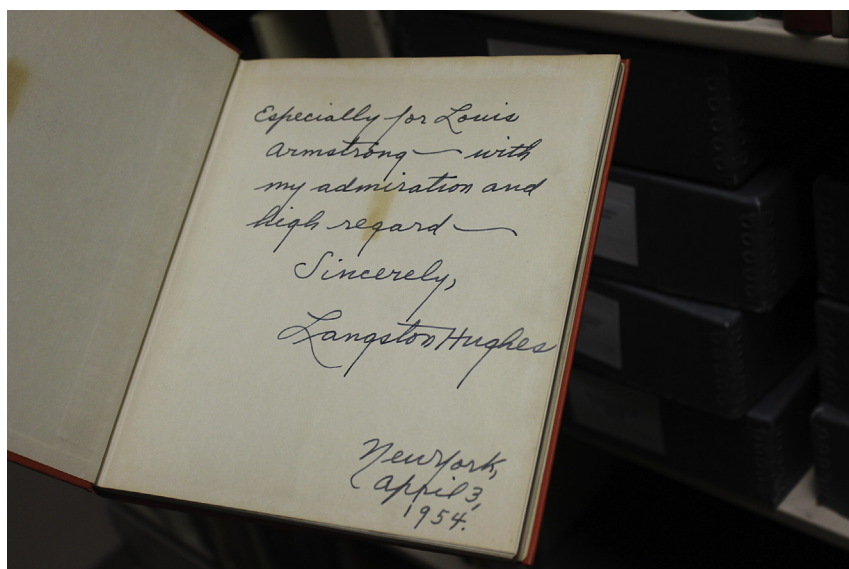 Especially for Louis
Armstrong — with
my admiration and
high regard —
Sincerely,
Langston Hughes
New York,
April 3,
1954.